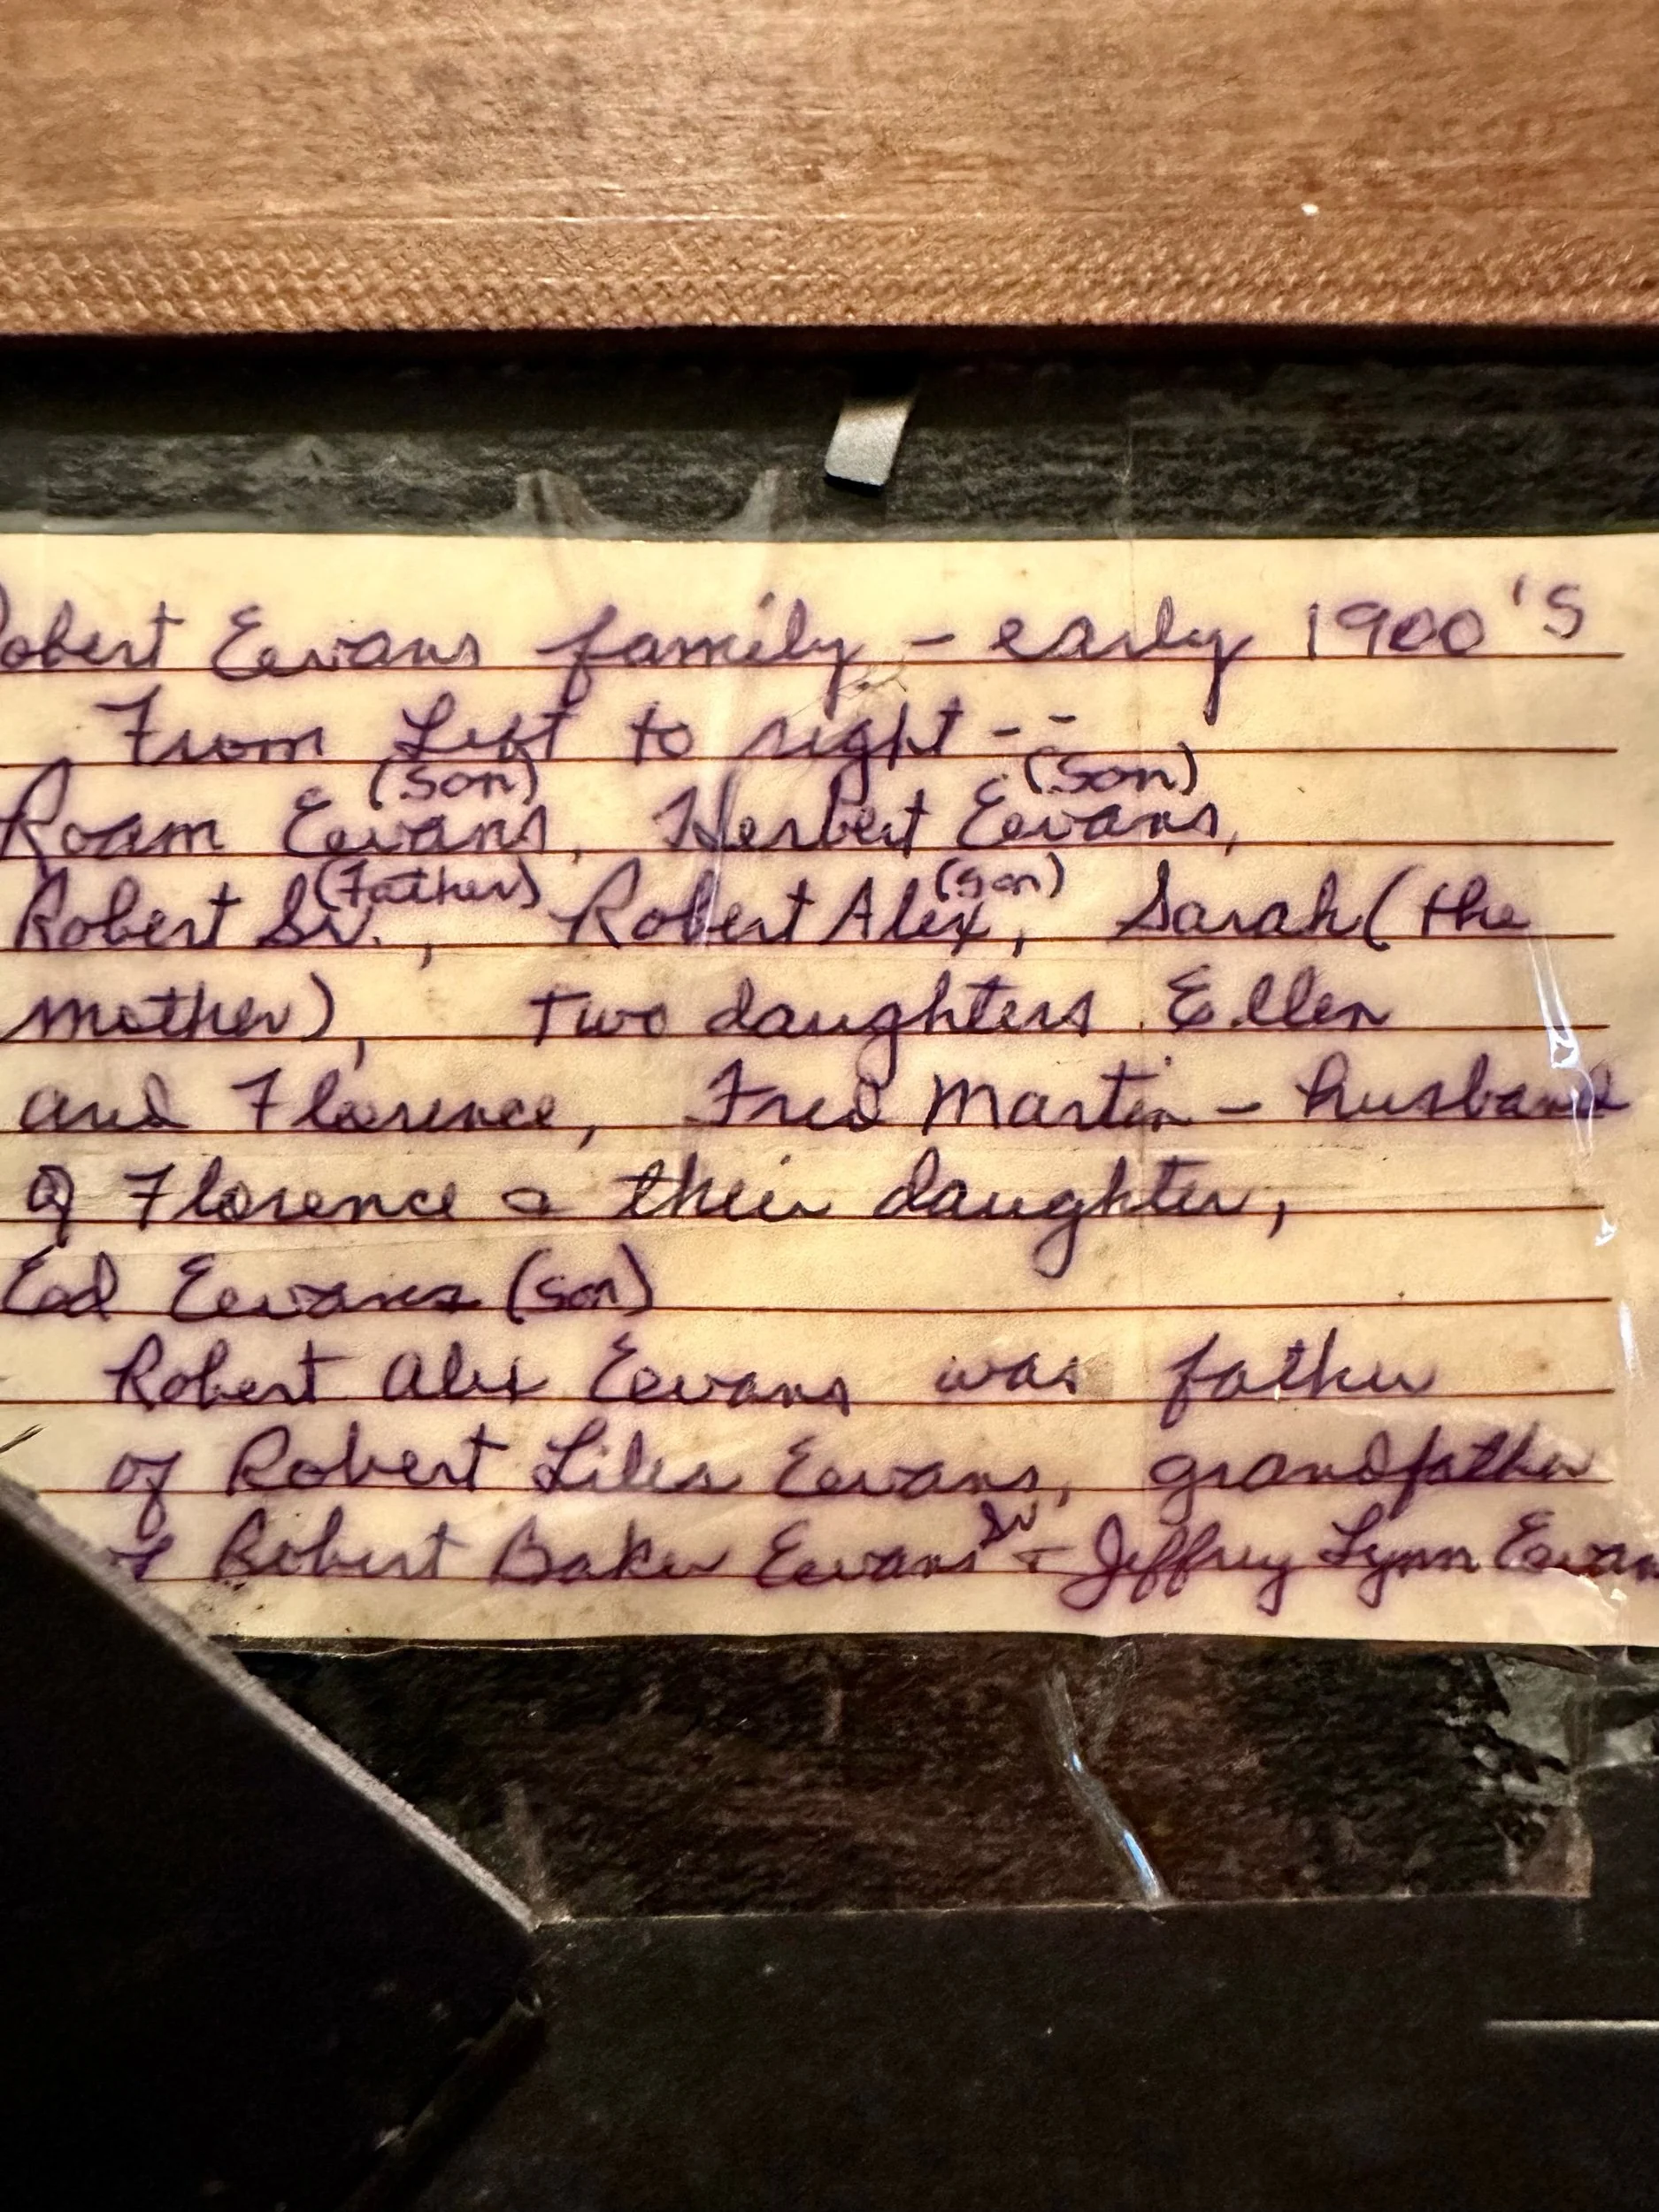 Robert Eevans family - early 1900's
From Left to right --
Roam Eevans (son), Herbert Eevans (son),
Robert Sr. (Father), Robert Alex (son), Sarah (the
mother), two daughters Ellen
and Florence, Fred Martin - husband
of Florence & their daughter,
Ed Eevans (son)
Robert Alex Eevans was father
of Robert Liles Eevans, grandfather
of Robert Baker Eevans Sr + Jeffrey Lynn Eevans